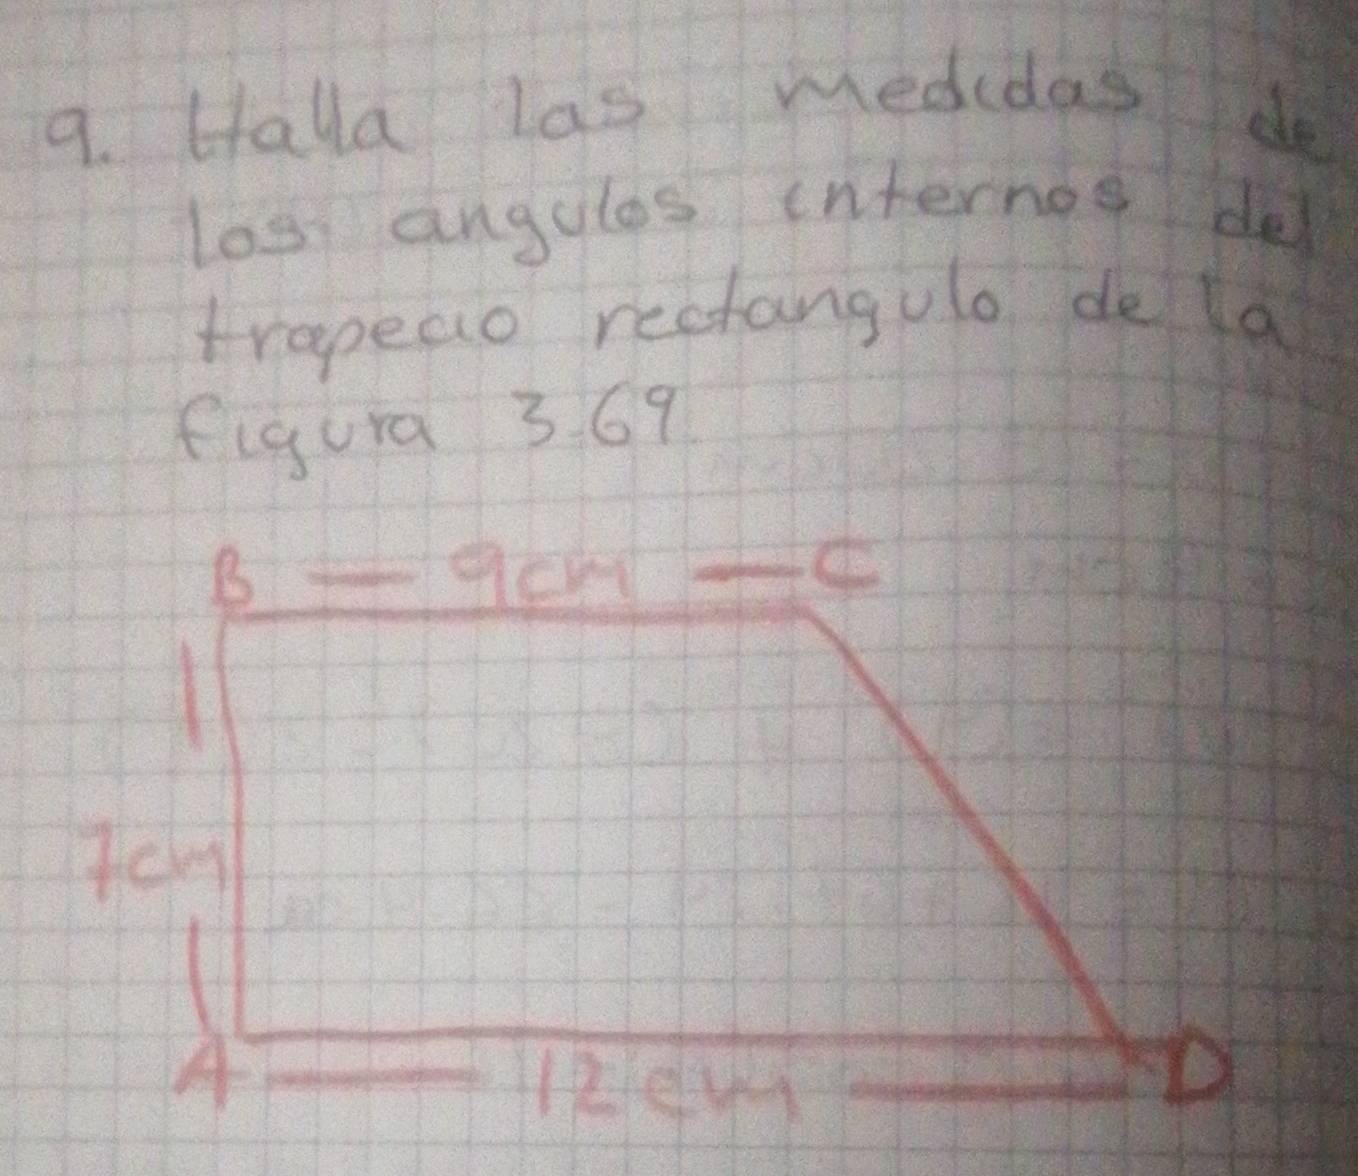 9. Halla las medidas de
los angulos internos del
trapecio rectangulo de la
figura 3.69
B — 9cm — C
7cm
A — 12cm — D